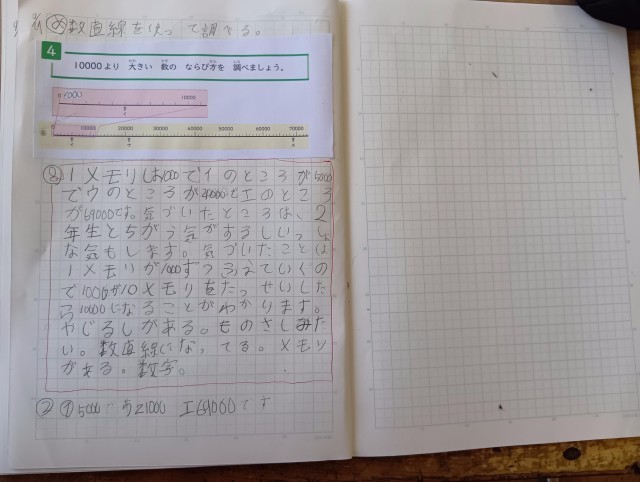 9/21 め 数直線を使って調べる。
4
10000より 大きい 数の ならび方を 調べましょう。
0 1000 10000
0 10000 20000 30000 40000 50000 60000 70000
1メモリは1000でイのところが5000
でウのところが21000でエのところ
が69000です。気づいたところは、2
年生とちがう気がするしいっしょ
な気もします。気づいたことは
1メモリが1000ずつふえていくの
で1000が10メモリをたっせいした
ら10000になることがわかります。
やじるしがある。ものさしみた
い。数直線になってる。メモリ
がある。数字。
② イ5000で う21000 エ69000です